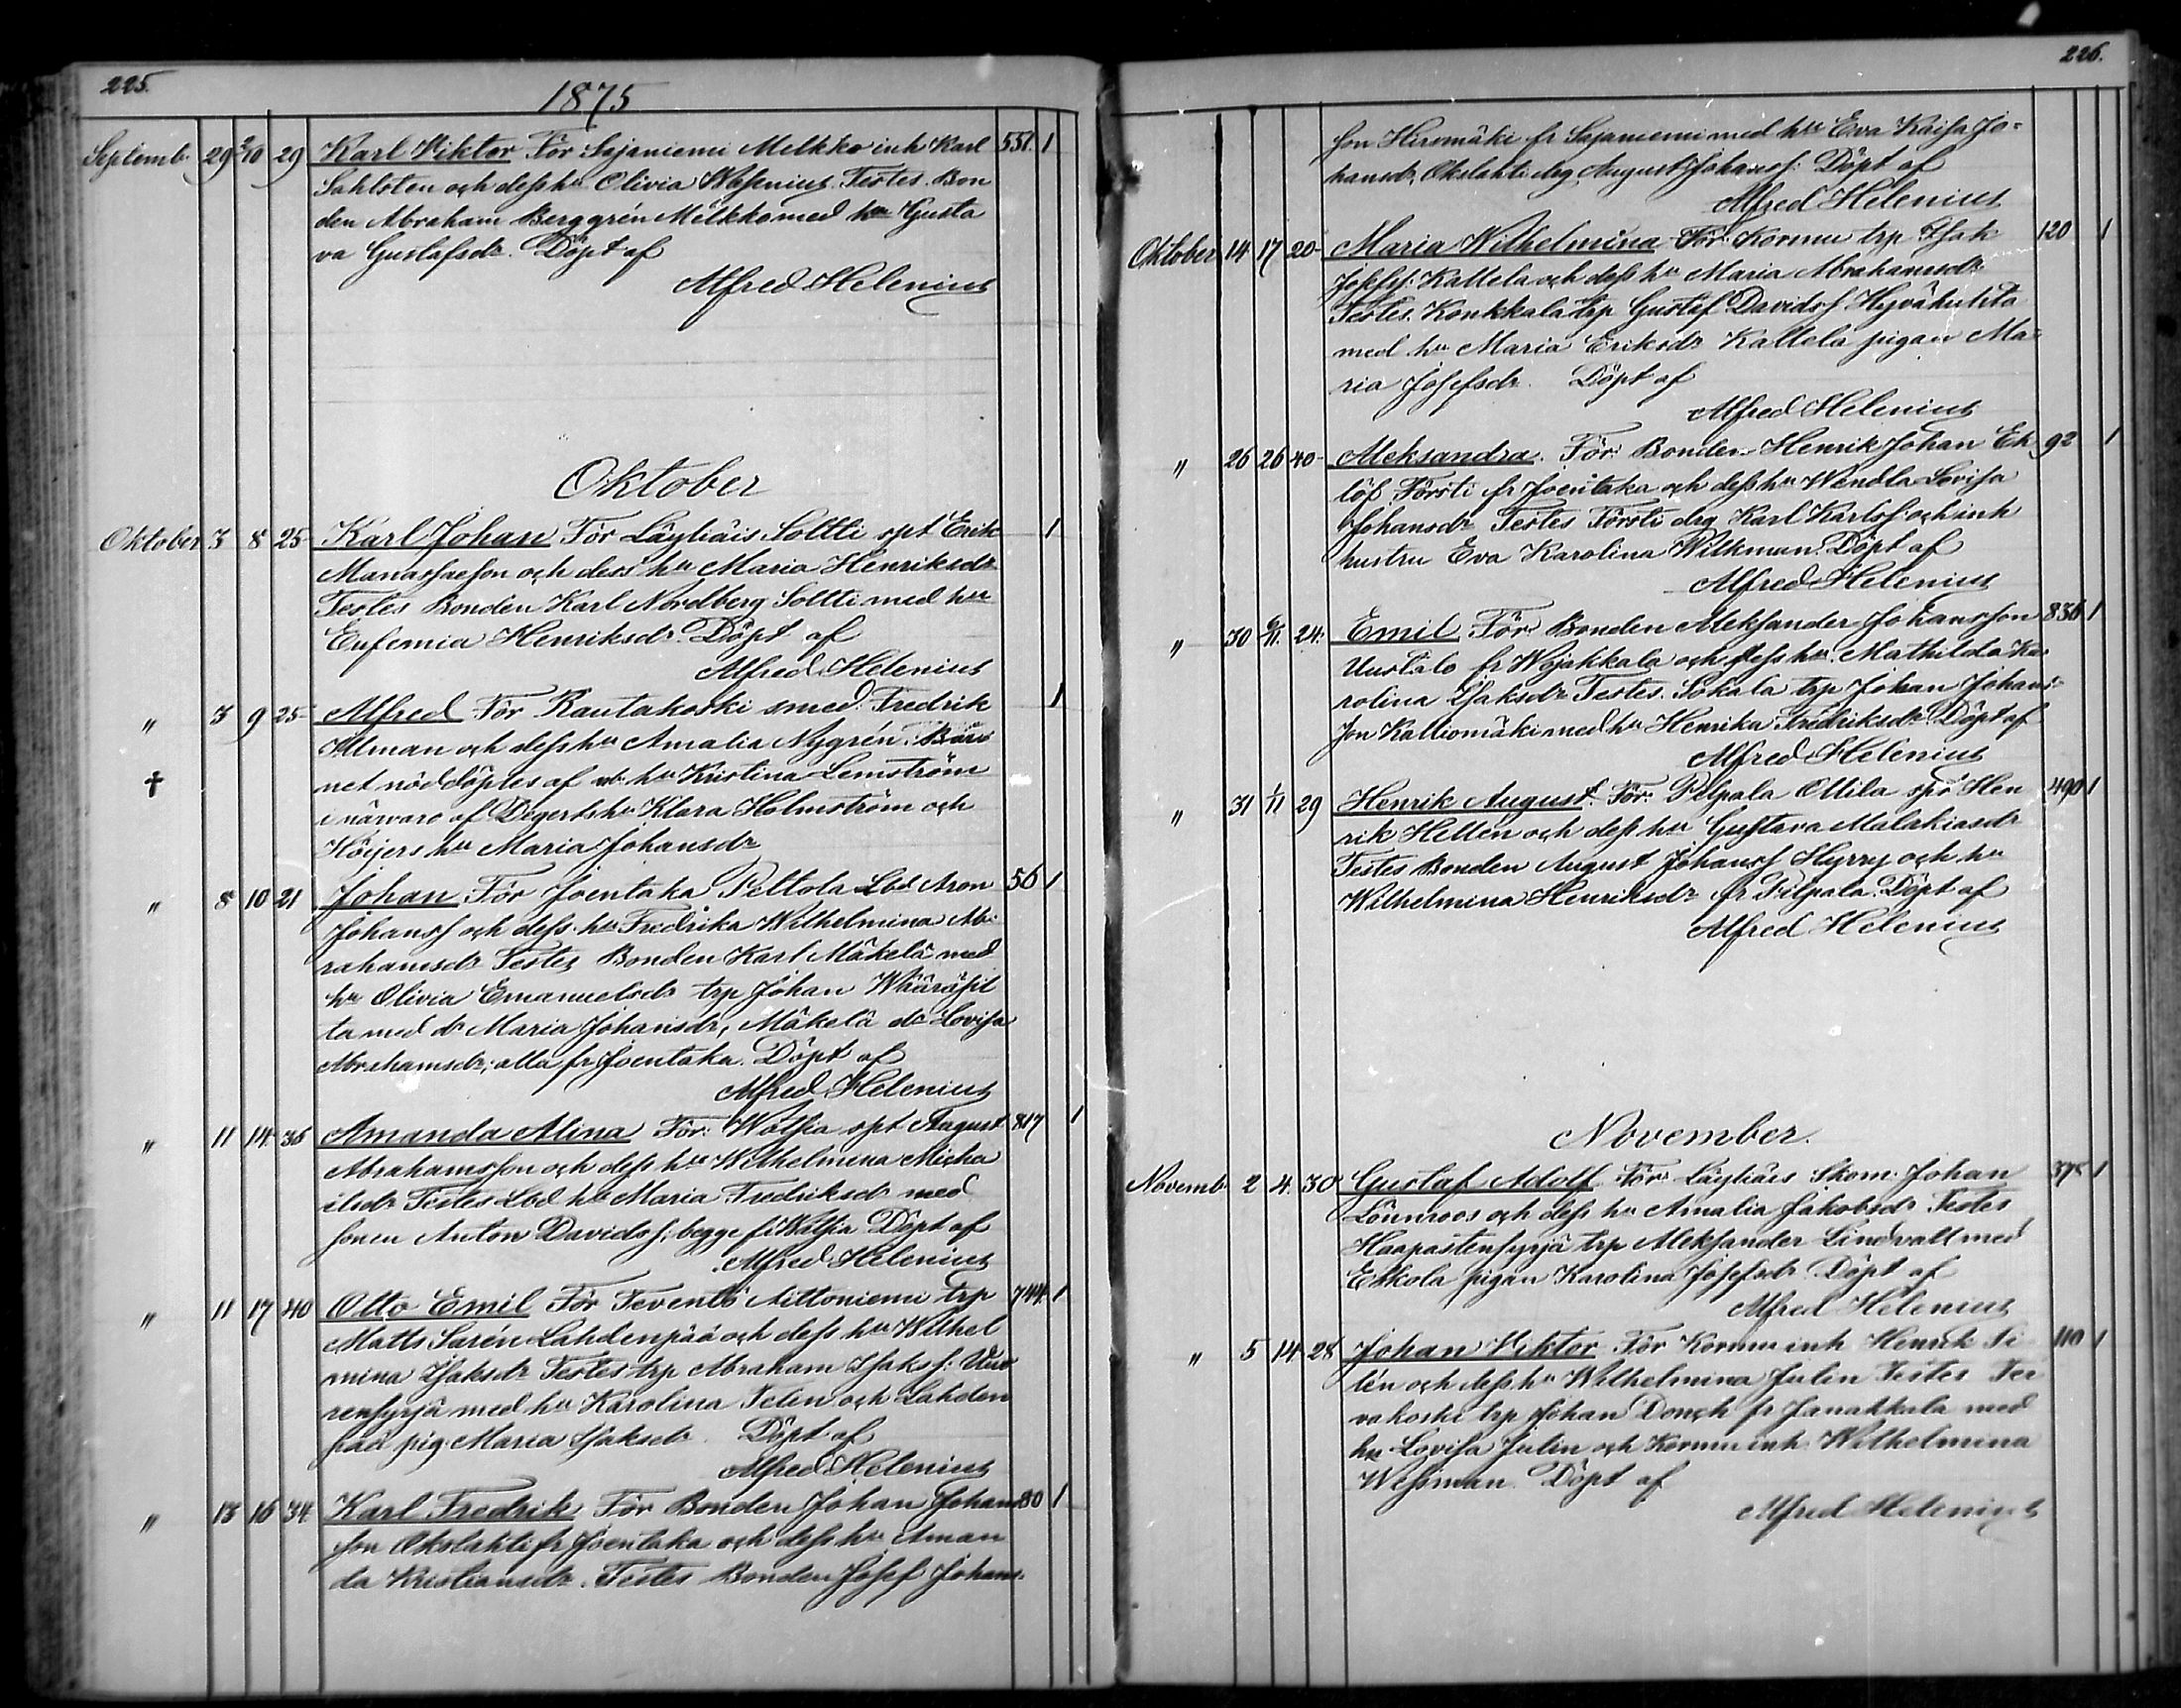 225.
1875
Septemb. 29 2/10 29 Karl Viktor För: Sajaniemi Melkko inh Karl 551. 1
Sahlsten och dess hu Olivia Wasenius. Testes. Bon
den Abraham Berggrén Melkko med hu Gusta
va Gustafsdr. Döpt af
Alfred Helenius
Oktober
Oktober 3 8 25 Karl Johan För Läyliäis Soltti spt Erik 1
Manassaeson och dess hu Maria Henriksdr
Testes Bonden Karl Nordberg Soltti med hu
Eufemia Henriksdr. Döpt af
Alfred Helenius
" 3 9 25 Alfred För Rautakoski smed. Fredrik 1
Ilman och dess hu Amalia Nygrén. Bar
† net nöddöptes af hu Kristina Lemström
i närvaro af Degerts hu Klara Holmström och
Höijers hu Maria Johansdr
" 8 10 21 Johan För Joentaka Peltola Lbd Aron 56 1
Johanss och dess hu Fredrika Wilhelmina Ab-
rahamsdr Testes Bonden Karl Mäkelä med
hu Olivia Emanuelsdr trp Johan Wääräsil
ta med dr Maria Johansdr, Mäkelä dr Lovisa
Abrahamsdr, alla fr Joentaka. Döpt af
Alfred Helenius
" 11 14 36 Amanda Alina För: Watsia spt August 817 1
Abrahamsson och dess hu Wilhelmina Micha
elsdr Testes Lbd hu Maria Fredriksdr med
sonen Anton Davidss: begge fr Watsia Döpt af
Alfred Helenius
" 11 17 40 Otto Emil För Teventö Nittoniemi trp 744. 1
Matts Sarén Lahdenpää och dess hu Wilhel
mina Isaksdr Testes trp Abraham Isakss: Vuo
rensyrjä med hu Karolina Telen och Lahden
pää pig. Maria Isaksdr. Döpt af
Alfred Helenius
" 13 16 34 Karl Fredrik För Bonden Johan Johans 80 1
son Okslahti fr Joentaka och dess hu Aman
da Kristiansdr. Testes Bonden Josef Johans-
226.
son Hirsmäki fr Sajaniemi med hu Eva Kaisa Jo-
hansdr, Okslahti drg August Johanss: Döpt af
Alfred Helenius
Oktober 14 17 20 Maria Wilhelmina För: Kormu trp Isak 120 1
Josefss: Kattela och dess hu Maria Abrahamsdr
Testes. Konkkala trp Gustaf Davidss Hyvähuhta
med hu Maria Eriksdr Kattela pigan Ma-
ria Josefsdr. Döpt af
Alfred Helenius
" 26 26 40 Aleksandra. För: Bonden Henrik Johan Ek 92 1
löf Försti fr Joentaka och dess hu Wendla Lovisa
Johansdr Testes Försti drg Karl Karlss: och inh
hustru Eva Karolina Wilkman. Döpt af
Alfred Helenius
" 30 6/11. 24. Emil För: Bonden Aleksander Johansson 836 1
Uustalo fr Wojakkala och dess hu Mathilda Ka
rolina Isaksdr Testes. Sokala trp Johan Johans-
son Kalliomäki med hu Henrika Fredriksdr Döpt af
Alfred Helenius
" 31 1/11 29 Henrik August. För: Pilpala Ollila spr Hen 490 1
rik Hellen och dess hu Gustava Malakiasdr
Testes Bonden August Johanss Hyrry och hu
Wilhelmina Henriksdr fr Pilpala. Döpt af
Alfred Helenius
November.
Novemb. 2 4. 30 Gustaf Adolf För: Läyliäis Skom. Johan 378 1
Lönnroos och dess hu Amalia Jakobsdr Testes
Haapastensyrjä trp Aleksander Lindvall med
Erkola pigan Karolina Josefsdr. Döpt af
Alfred Helenius
" 5 14 28 Johan Viktor För Kormu inh Henrik Ti 110 1
lén och dess hu Wilhelmina Julin Testes Ter
vakoski trp Johan Donch fr Janakkala med
hu Lovisa Julin och Kormu inh Wilhelmina
Wessman. Döpt af
Alfred Helenius